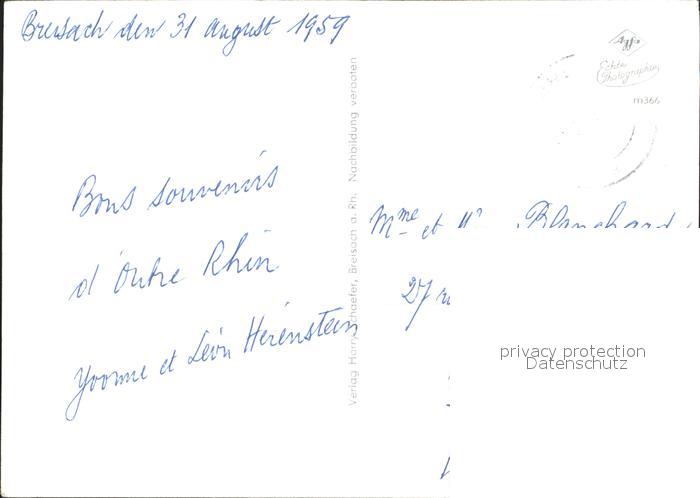 Breisach den 31 august 1959
Bons souvenirs
d'Outre Rhin
Yvonne et Léon Hérenstein
Verlag Harry Schaefer, Breisach a. Rh. Nachbildung verboten
Agfa
Echte
Photographie
m366
Mme et Mr Blanchard
27 r
privacy protection
Datenschutz